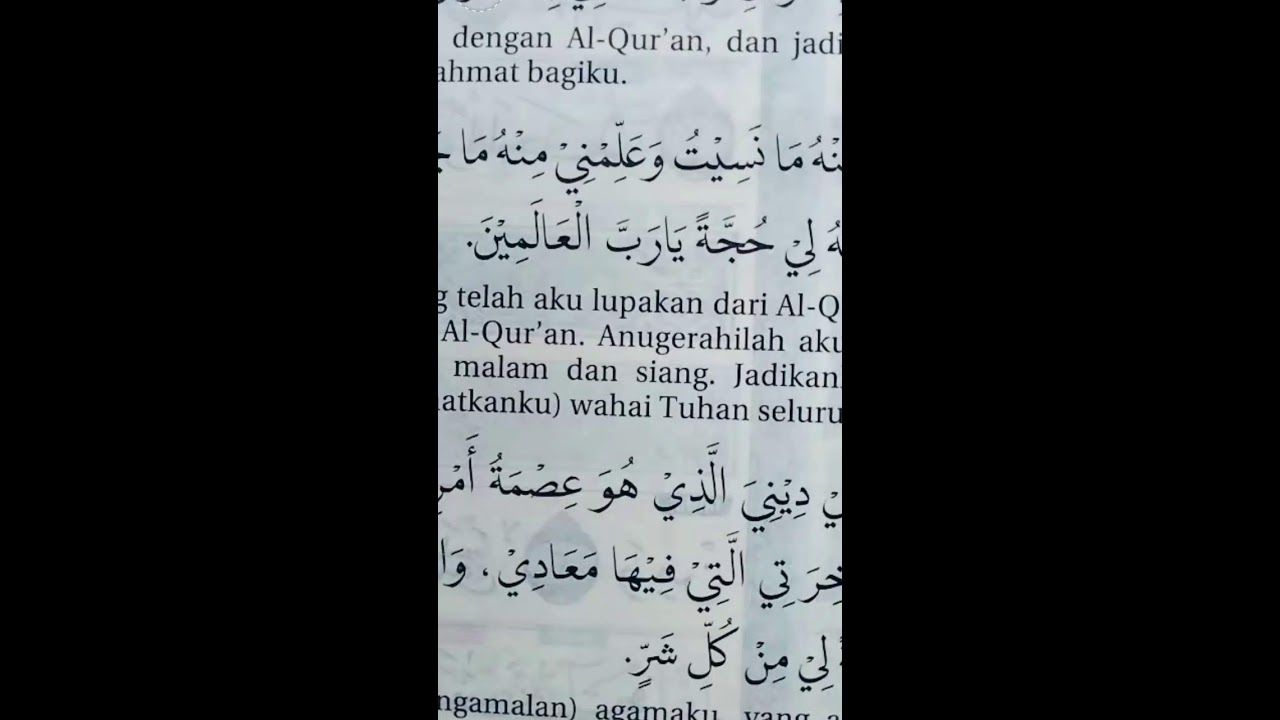 dengan Al-Qur'an, dan
ahmat bagiku.
مَا نَسِيْتُ وَعَلِّمْنِيْ مِنْهُ مَا
لِيْ حُجَّةً يَارَبَّ الْعَالَمِيْنَ.
telah aku lupakan dari Al-Q
Al-Qur'an. Anugerahilah aku
malam dan siang. Jadikan
atkanku) wahai Tuhan seluru
دِيْنِيَ الَّذِيْ هُوَ عِصْمَةُ
خِرَتِي الَّتِيْ فِيْهَا مَعَادِيْ، وَا
لِيْ مِنْ كُلِّ شَرٍّ.
ngamalan) agamaku, yang